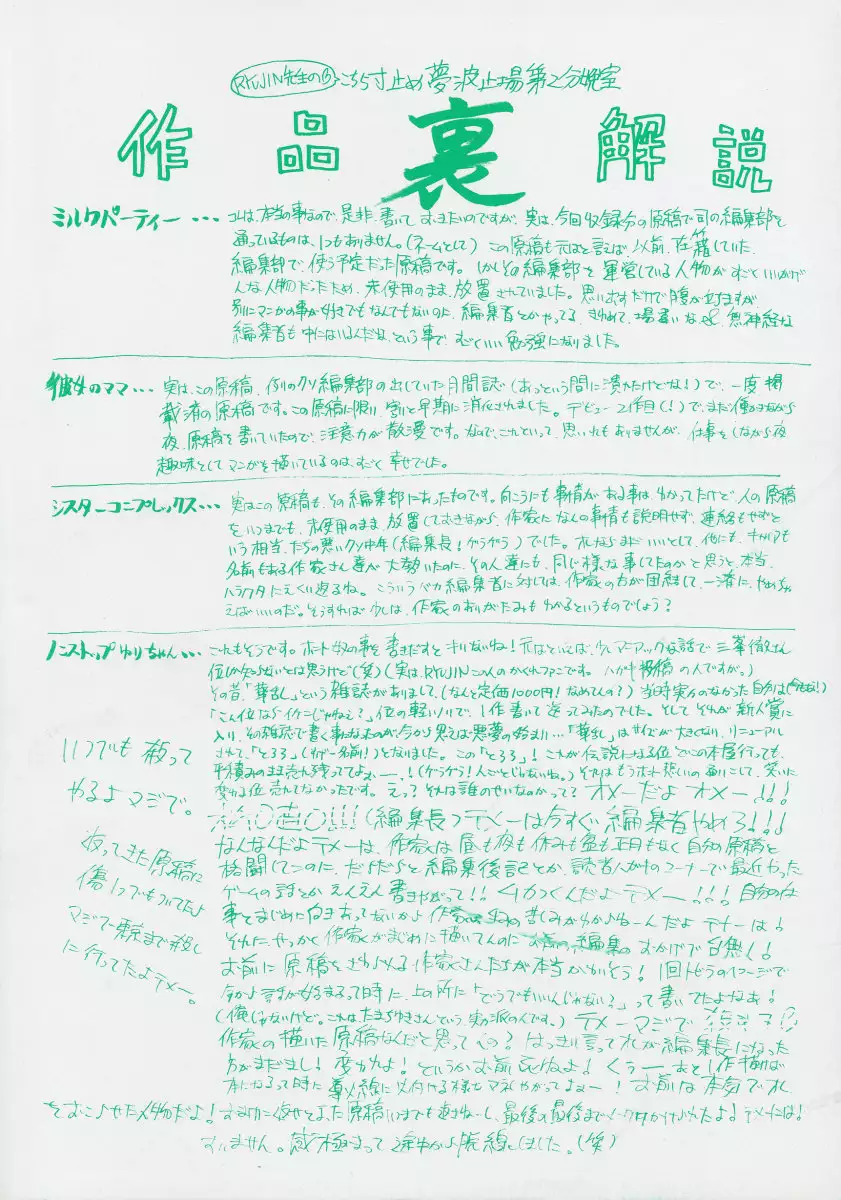 RYUJIN先生の こちら寸止め夢波止場第2分娩室
作品裏解説
ミルクパーティー・・・ は、本当の事なので、是非、書いておきたいのですが、実は、今回収録分の原稿で司の編集部を
通っているものは、1つもありません。(ネームとして) この原稿も元はと言えば、以前、在籍していた
編集部で、使う予定だった原稿です。しかしその編集部を運営している人物が
んな人物だったため、未使用のまま、放置されていました。思い出すだけで腹が立ちますが
別にマンガの事が好きでもなんでもないのに、編集者とかやってる、きわめて、場違いな 無神経な
編集者も中にはいるんだな、という事で、すごくいい勉強になりました。
彼女のママ・・・ 実は、この原稿、例のクソ編集部の出していた月間誌(あっという間に潰れたけどな!)で、一度掲
載済の原稿です。この原稿に限り、割と早期に消化されました。デビュー2作目(!)で、まだ働きながら
夜、原稿を書いていたので、注意力が散漫です。なので、これといって、思い入れもありませんが、仕事をしながら夜
趣味としてマンガを描いているのは、すごく幸せでした。
シスターコンプレックス・・・ 実はこの原稿も、その編集部にあったものです。向こうにも事情がある事は、わかってたけど、人の原稿
をいつまでも、未使用のまま、放置しておきながら、作家になんの事情も説明せず、連絡もせずと
いう相当、たちの悪いクソ中年(編集長!ゲラゲラ)でした。オレならまだいいとして、他にも、キャリアも
名前もある作家さん達が大勢いたのに、その人達にも、同じ様な事してたのかと思うと、本当、
ハラワタにえくり返るね。こういうバカ編集者に対しては、作家の方が団結して、一斉に、やめちゃ
えばいいのだ。そうすれば少しは、作家のありがたみもわかるというものでしょう?
ノンストップゆりちゃん・・・ これもそうです。ホント奴の事を書きだすとキリないね!元はといえば、少しマニアックな話で三峯徹さん
位しか知らないとは思うけど(笑)(実は、RYUJINこの人のかくれファンです。ハガキ投稿の人ですが。)
その昔「華乱」という雑誌がありまして、(なんと定価1000円!なめてんの?)当時実力のなかった自分は
「こん位ならイケんじゃねえ?」位の軽いノリで、1作書いて送ってみたのでした。そしてそれが新人賞に
入り、その雑誌で書く事になったのが今から思えば悪夢の始まり・・・「華乱」はサイズが大きくなり、リニューアル
されて、「とろろ」(すげー名前!)となりました。この「とろろ」!これが伝説になる位どこの本屋行っても、
平積みのまま売れ残っててよぉー、!(ゲラゲラ!人ごとじゃないね。)それはもうホント悲しいの通りこして、笑いに
変わる位売れてなかったです。えっ?それは誰のせいなのかって?オメーだよオメー!!!
(編集長)テメーは今すぐ編集者やめろ!!!
なんなんだよテメーは、作家は昼も夜も休みも盆も正月もなく自分の原稿と
格闘してんのに、だらだらと編集後記とか、読者ハガキのコーナーで最近やった
ゲームの話とかえんえん書きやがって!!ムカつくんだよテメー!!!自分の仕
事とまじめに向きあってないから作家 の苦しみがわからねーんだよテメーは!
それに、せっかく作家がまじめに描いてんのにお前の編集のおかげで台無し!
お前に原稿をさわられる作家さんたちが本当かわいそう!1回トビラの1ページで
今から話が始まるって時に、上の所に「どうでもいいんじゃない?」って書いてたよなぁ!
(俺じゃないけど。これはたまちゆきさんという、実力派の人です。)テメーマジで
作家の描いた原稿なんだと思ってんの?はっきり言ってオレが編集長になった
方がまだまし!変われよ!というかお前死ねよ!くぅーあと1作描けば
本になるって時に マネしやがってよぉー!お前は本気でオレ
をおこらせた人物だよ!おまけに俺せてよった原稿いまでも返さねーし、最後の最後まで かけやがったよ!テメーは!
すいません。感極まって途中から脱線しました。(笑)
いつでも殺って
やるよマジで。
返ってきた原稿に
傷1つでもついてたら
マジで東京まで殺し
に行ってたよテメー。